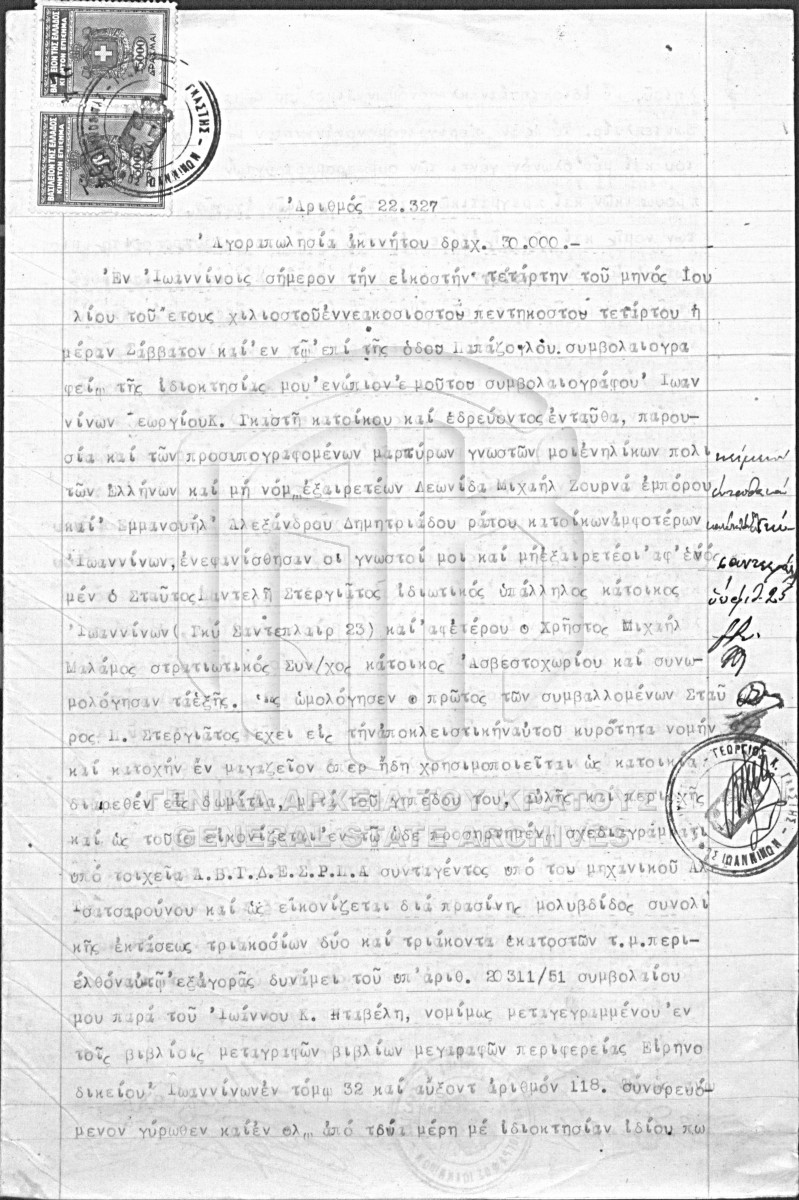 ΒΑΣΙΛΕΙΟΝ ΤΗΣ ΕΛΛΑΔΟΣ
ΚΙΝΗΤΟΝ ΕΠΙΣΗΜΑ
5000
ΔΡΑΧΜΑΙ
ΒΑΣΙΛΕΙΟΝ ΤΗΣ ΕΛΛΑΔΟΣ
ΚΙΝΗΤΟΝ ΕΠΙΣΗΜΑ
ΓΚΑΣΤΗΣ
Ἀριθμός 22.327
Ἀγοραπωλησία ἀκινήτου δραχ. 30.000.-
Ἐν Ἰωαννίνοις σήμερον τήν εἰκοστήν τετάρτην τοῦ μηνός Ιου
λίου τοῦ ἔτους χιλιοστοῦἐννεακοσιοστοῦ πεντηκοστοῦ τετάρτου ἡ
μέραν Σάββατον καί ἐν τῷ ἐπί τῆς ὁδοῦ συμβολαιογρα
φείῳ τῆς ἰδιοκτησίας μου ἐνώπιον ἐμοῦτοῦ συμβολαιογράφου Ἰωαν
νίνων ΓεωργίουΚ. Γκαστῆ κατοίκου καί ἑδρεύοντος ἐνταῦθα, παρου-
σία καί τῶν προσυπογραφομένων μαρτύρων γνωστῶν μοιἐνηλίκων πολι
τῶν Ἑλλήνων καί μή νόμῳἐξαιρετέων Λεωνίδα Μιχαήλ Ζουρνά ἐμπόρου
καί Ἐμμανουήλ Ἀλεξάνδρου Δημητριάδου ράπτου κατοίκωνἀμφοτέρων
Ἰωαννίνων, ἐνεφανίσθησαν οἱ γνωστοί μοι καί μήἐξαιρετέοι ἀφ'ἑνός
μέν ὁ Σταῦρος Παντελῆ Στεργιᾶτος ἰδιωτικός ὑπάλληλος κάτοικος
Ἰωαννίνων( Γκύ Σαντεπλαίρ 23) καί ἀφετέρου ὁ Χρῆστος Μιχαήλ
Μαλάμος στρατιωτικός Συν/χος κάτοικος Ἀσβεστοχωρίου καί συνω-
μολόγησαν τάἑξῆς. Ὡς ὡμολόγησεν ὁ πρῶτος τῶν συμβαλλομένων Σταῦ
ρος Π. Στεργιᾶτος ἔχει εἰς τήνἀποκλειστικήναὐτοῦ κυρότητα νομήν
καί κατοχήν ἕν μαγαζεῖον ὅπερ ἤδη χρησιμοποιεῖται ὡς κατοικία
διαιρεθέν εἰς δωμάτια, μετά τοῦ γηπέδου του, αὐλῆς καί περιοχῆς
καί ὡς τοῦτο εἰκονίζεται ἐν τῷ ὧδε προσηρτημένῳ σχεδιαγράμματι
ὑπό στοιχεῖα Α.Β.Γ.Δ.Ε.Σ.Ρ.Π.Α συνταγέντος ὑπό τοῦ μηχανικοῦ
Τσατσαρούνου καί ὡς εἰκονίζεται διά πρασίνης μολυβδίδος συνολι
κῆς ἐκτάσεως τριακοσίων δύο καί τριάκοντα ἑκατοστῶν τ.μ.περι-
ελθόναὐτῷ ἐξἀγορᾶς δυνάμει τοῦ ὑπ'ἀριθ. 20311/51 συμβολαίου
μου παρά τοῦ Ἰωάννου Κ. Νταβέλη, νομίμως μεταγεγραμμένου ἐν
τοῖς βιβλίοις μεταγραφῶν βιβλίων μεταγραφῶν περιφερείας Εἰρηνο
δικείου Ἰωαννίνωνἐν τόμῳ 32 καί αὔξοντ ἀριθμόν 118. συνορευό-
μενον γύρωθεν καίἐν ὅλῳ ἀπό τρία μέρη μέ ἰδιοκτησίαν ἰδίου πω
ΓΕΩΡΓΙΟΣ Κ. ΓΚΑΣΤΗΣ
ΙΩΑΝΝΙΝΩΝ
ΓΕΝΙΚΑ ΑΡΧΕΙΑ ΤΟΥ ΚΡΑΤΟΥΣ
GENERAL STATE ARCHIVES